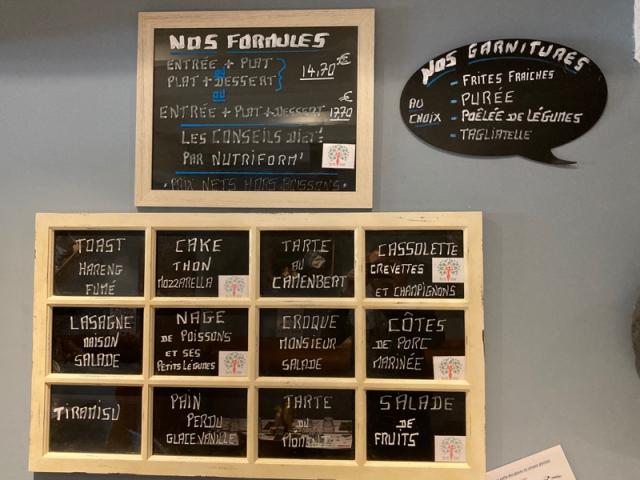 NOS FORMULES
ENTRÉE + PLAT
ou
PLAT + DESSERT
14,70€
ou
ENTRÉE + PLAT + DESSERT 17,70 €
LES CONSEILS DIET!
PAR NUTRIFORM'
PRIX NETS HORS BOISSONS
NOS GARNITURES
AU CHOIX
- FRITES FRAÎCHES
- PURÉE
- POÊLÉE DE LÉGUMES
- TAGLIATELLE
TOAST
HARENG
FUMÉ
CAKE
THON
MOZZARELLA
TARTE
AU
CAMENBERT
CASSOLETTE
CREVETTES
ET CHAMPIGNONS
LASAGNE
MAISON
SALADE
NAGE
DE POISSONS
ET SES
PETITS LÉGUMES
CROQUE
MONSIEUR
SALADE
CÔTES
DE PORC
MARINÉE
TIRAMISU
PAIN
PERDU
GLACE VANILLE
TARTE
DU
MOMENT
SALADE
DE
FRUITS